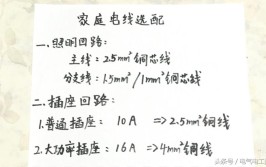 家庭电线选配
一.照明回路:
主线:2.5mm²铜芯线
分支线:1.5mm²/1mm²铜芯线
二.插座回路:
1.普通插座: 10A => 2.5mm²铜线
2.大功率插座:16A => 4mm²铜线
头条号/电气电工